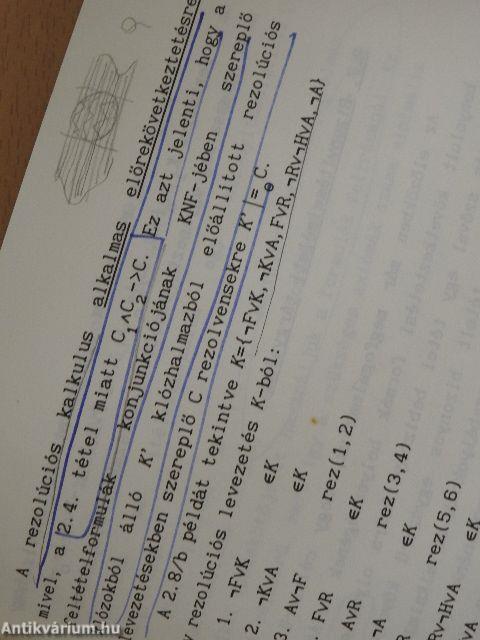 A rezolúciós kalkulus alkalmas előrekövetkeztetésre
mivel, a 2.4. tétel miatt C₁∧C₂->C. Ez azt jelenti, hogy a
feltételformulák konjunkciójának KNF-jében szereplő
klózokból álló K' klózhalmazból előállított rezolúciós
levezetésekben szereplő C rezolvensekre K' |=ₑ C.
A 2.8/b példát tekintve K={¬FvK, ¬KvA, FvR, ¬Rv¬HvA, ¬A}
rezolúciós levezetés K-ból:
1. ¬FvK ∈K
2. ¬KvA ∈K
3. Av¬F rez(1,2)
FvR ∈K
AvR rez(3,4)
¬A ∈K
rez(5,6)
Rv¬HvA ∈K
Antikvárium.hu